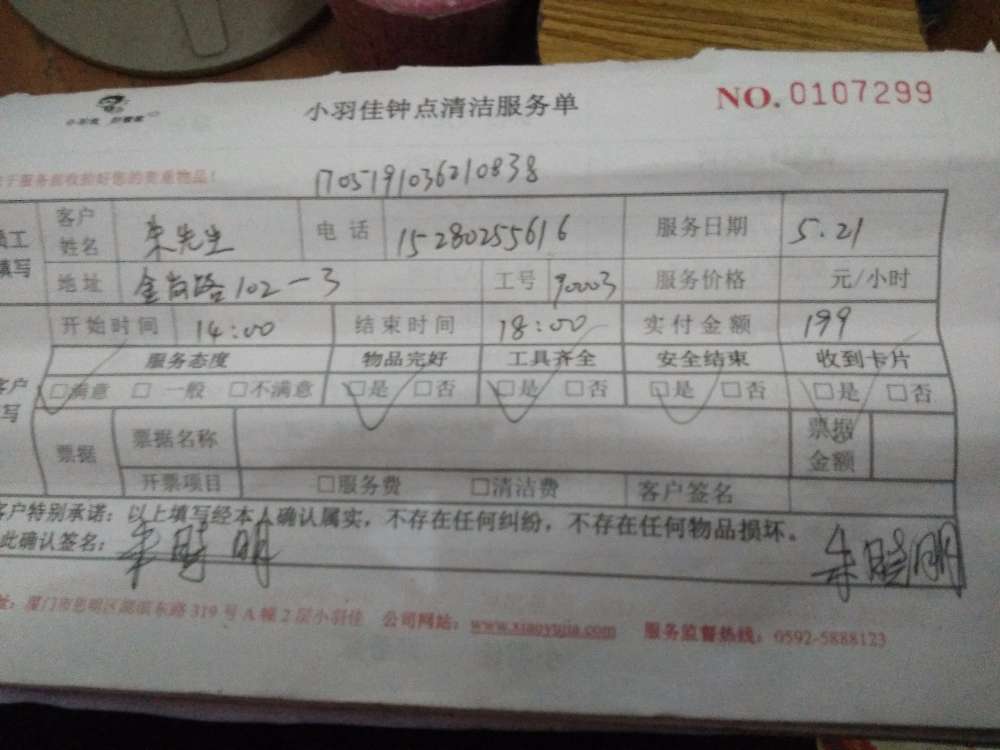 小羽佳钟点清洁服务单 NO. 0107299
于服务前收拾好您的贵重物品！ 1705191036210838
员工填写 客户姓名 朱先生 电话 15280255616 服务日期 5.21
地址 102-3 工号 90003 服务价格 元/小时
开始时间 14:00 结束时间 18:00 实付金额 199
服务态度 物品完好 工具齐全 安全结束 收到卡片
客户填写 □满意 □一般 □不满意 □是 □否 □是 □否 □是 □否 □是 □否
票据 票据名称 票据金额
开票项目 □服务费 □清洁费 客户签名
客户特别承诺：以上填写经本人确认属实，不存在任何纠纷，不存在任何物品损坏。
此确认签名：朱晓明 朱晓明
址：厦门市思明区湖滨东路319号A幢2层小羽佳 公司网站：www.xiaoyujia.com 服务监督热线：0592-5888123